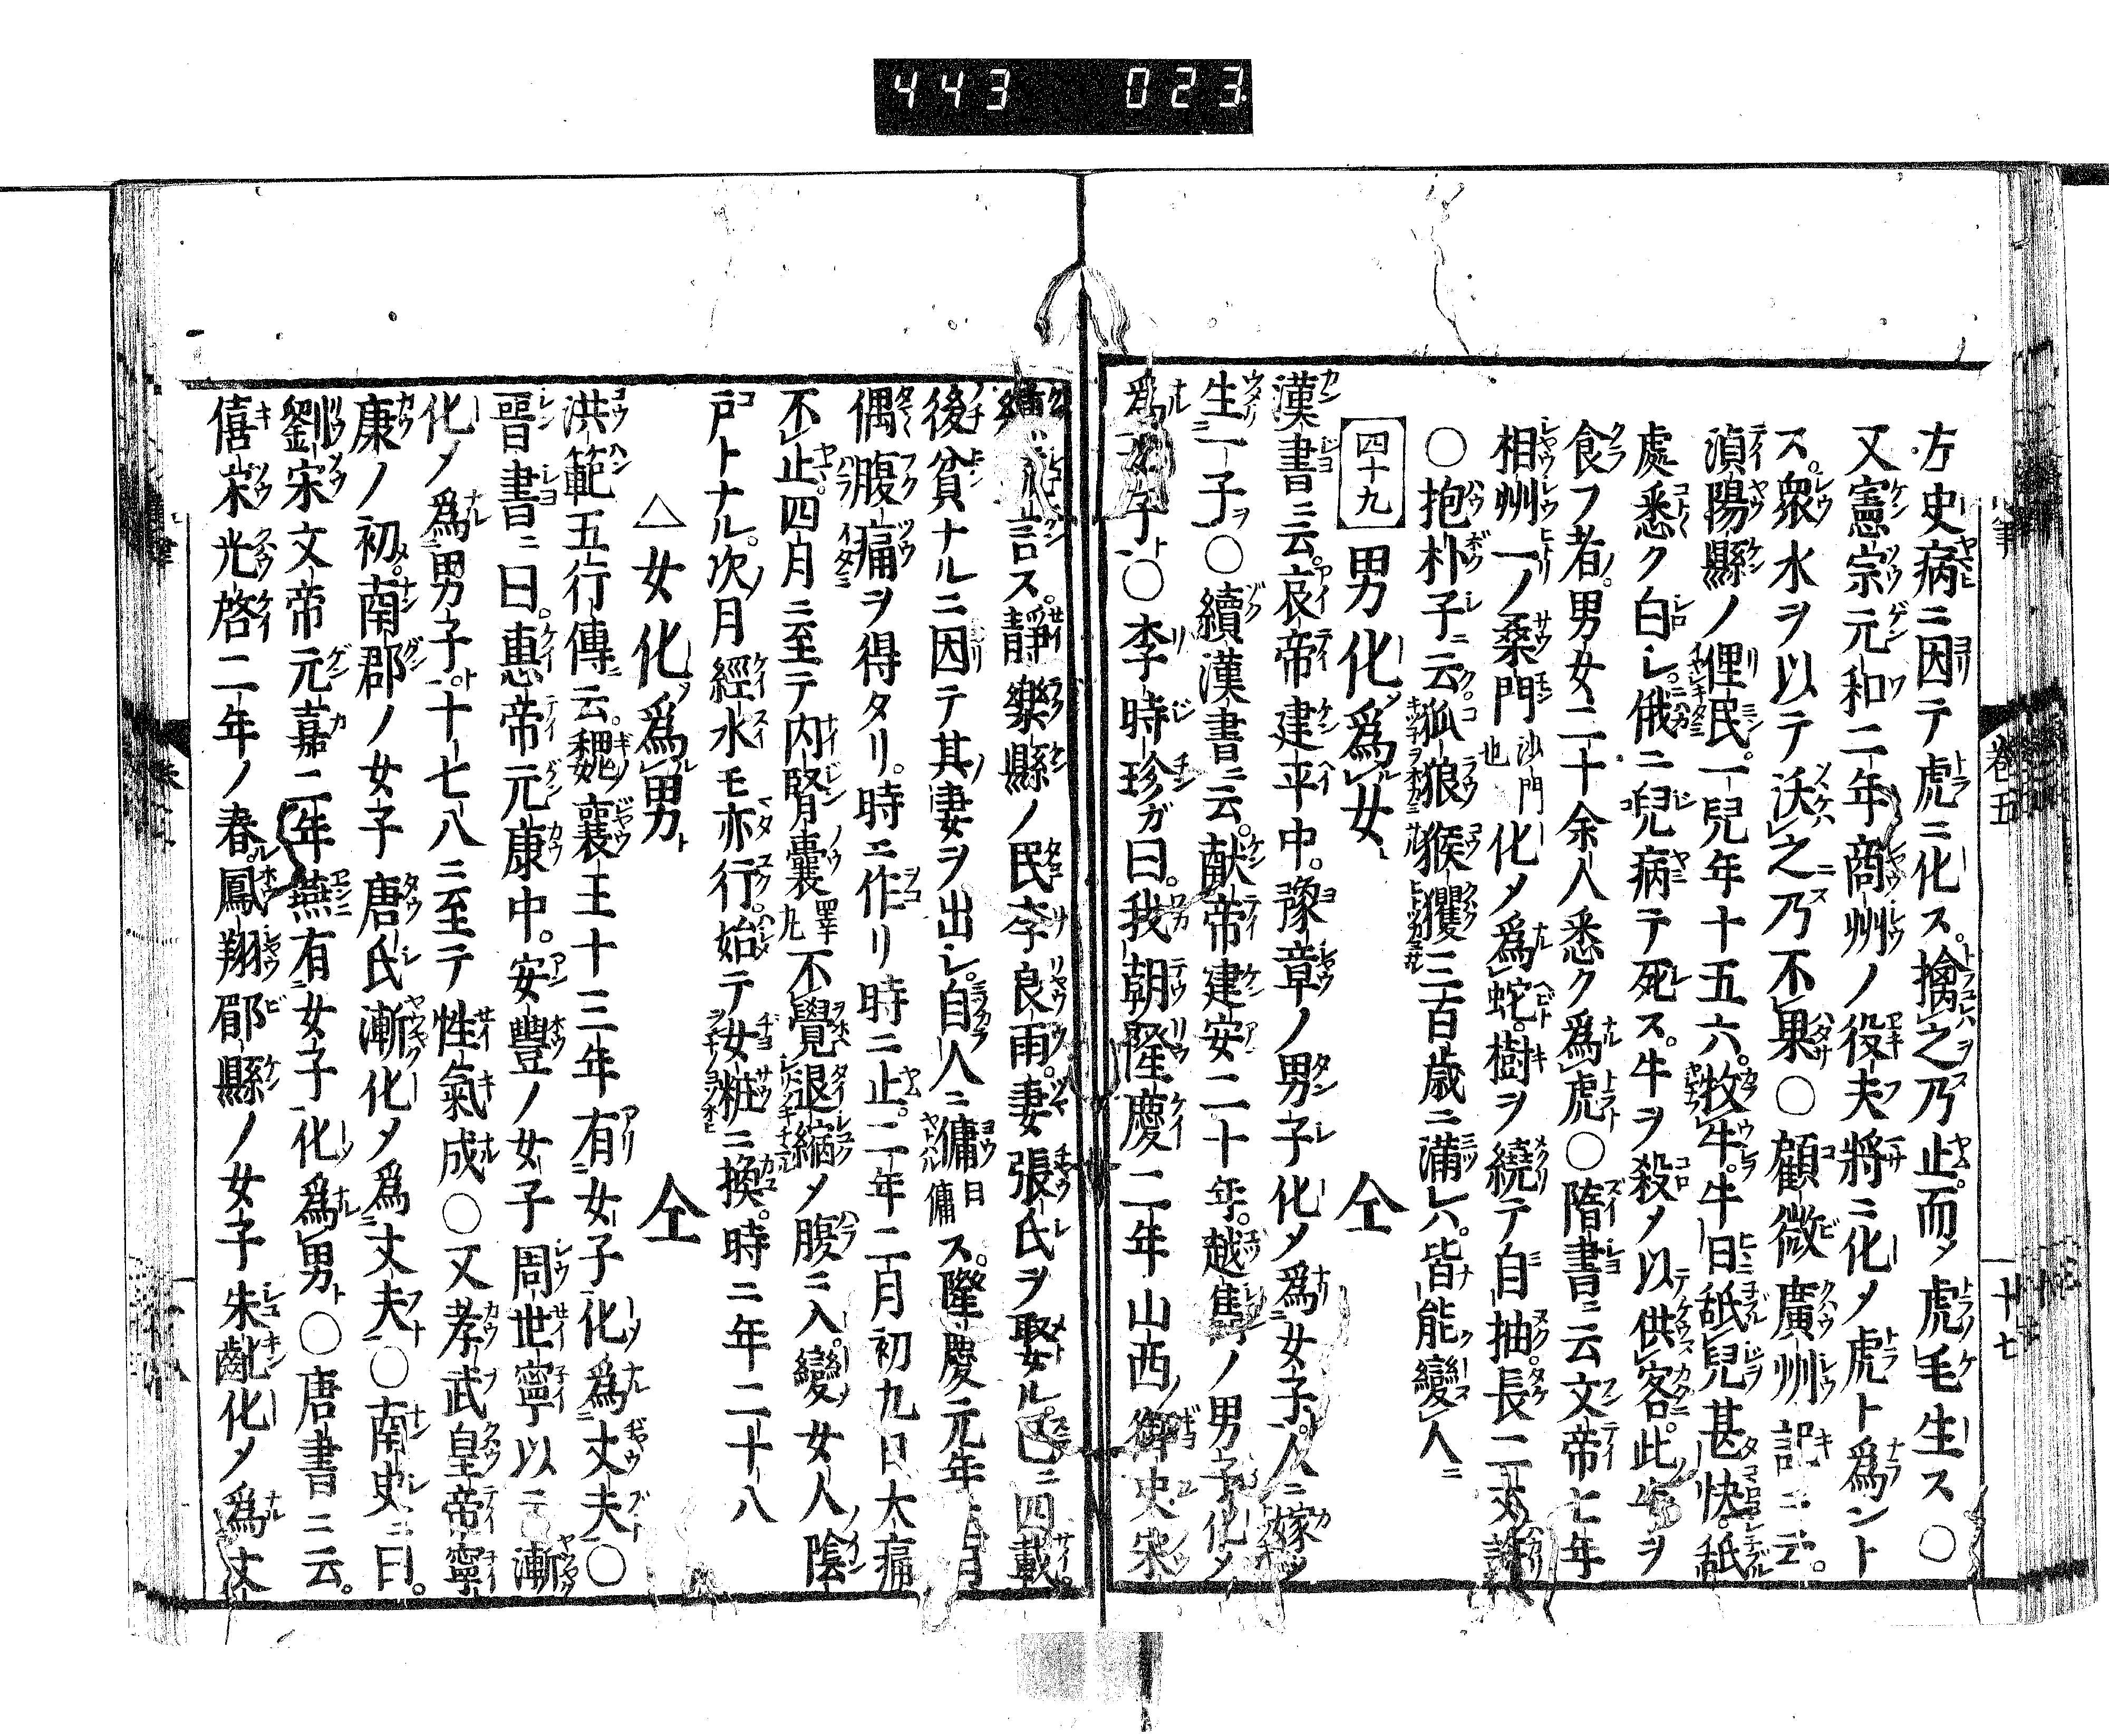 443 023
方史病ニ因テ虎ニ化ス。擒之乃止而〆虎毛生ス○
又憲宗元和二年商州ノ役夫將ニ化〆虎ト爲ント
ス。衆水ヲ以テ沃之乃不果○顧微廣州記ニ云。
湞陽縣ノ俚民。一兒年十五六。牧牛。牛日舐兒甚快。舐
處悉ク白シ。俄ニ兒病テ死ス。牛ヲ殺〆以供客。此牛ヲ
食フ者。男女二十余人悉ク爲虎○隋書ニ云文帝七年
相州一ノ桑門沙門也化〆爲蛇。樹ヲ繞テ自抽。長二丈許
○抱朴子ニ云狐狼猴玃三百歳ニ滿レハ。皆能變人ニ
四十九 男化〆爲女 仝
漢書ニ云。哀帝建平中。豫章ノ男子化〆爲女子。人ニ嫁〆
生一子ヲ○續漢書ニ云。献帝建安二十年。越雋ノ男子化〆
爲女子○李時珍ガ曰。我朝隆慶二年山西ノ御史宋
纁言ス。靜樂縣ノ民李良雨。妻張氏ヲ娶ル。已ニ四載。
後貧ナルニ因テ其妻ヲ出シ。自人ニ傭日傭ス。隆慶元年正月
偶腹痛ヲ得タリ。時ニ作リ時ニ止。二年二月初九日大痛
不止四月ニ至テ内腎嚢睪丸不覺退縮〆腹ニ入。變女人陰
戸トナル。次月經水モ亦行。始テ女粧ニ換。時ニ年二十八
△女化〆爲男 仝
洪範五行傳ニ云。魏襄王十三年有女子化爲丈夫○
晋書ニ曰。惠帝元康中。安豐ノ女子周世寧以ニ漸
化〆爲男子。十七八ニ至テ性氣成○又孝武皇帝寧
康ノ初。南郡ノ女子唐氏漸化〆爲丈夫○南史ニ曰。
劉宋文帝元嘉二年燕有女子化爲男○唐書ニ云。
僖宗光啓二年ノ春。鳳翔郿縣ノ女子朱齔化〆爲丈
卷五
十七